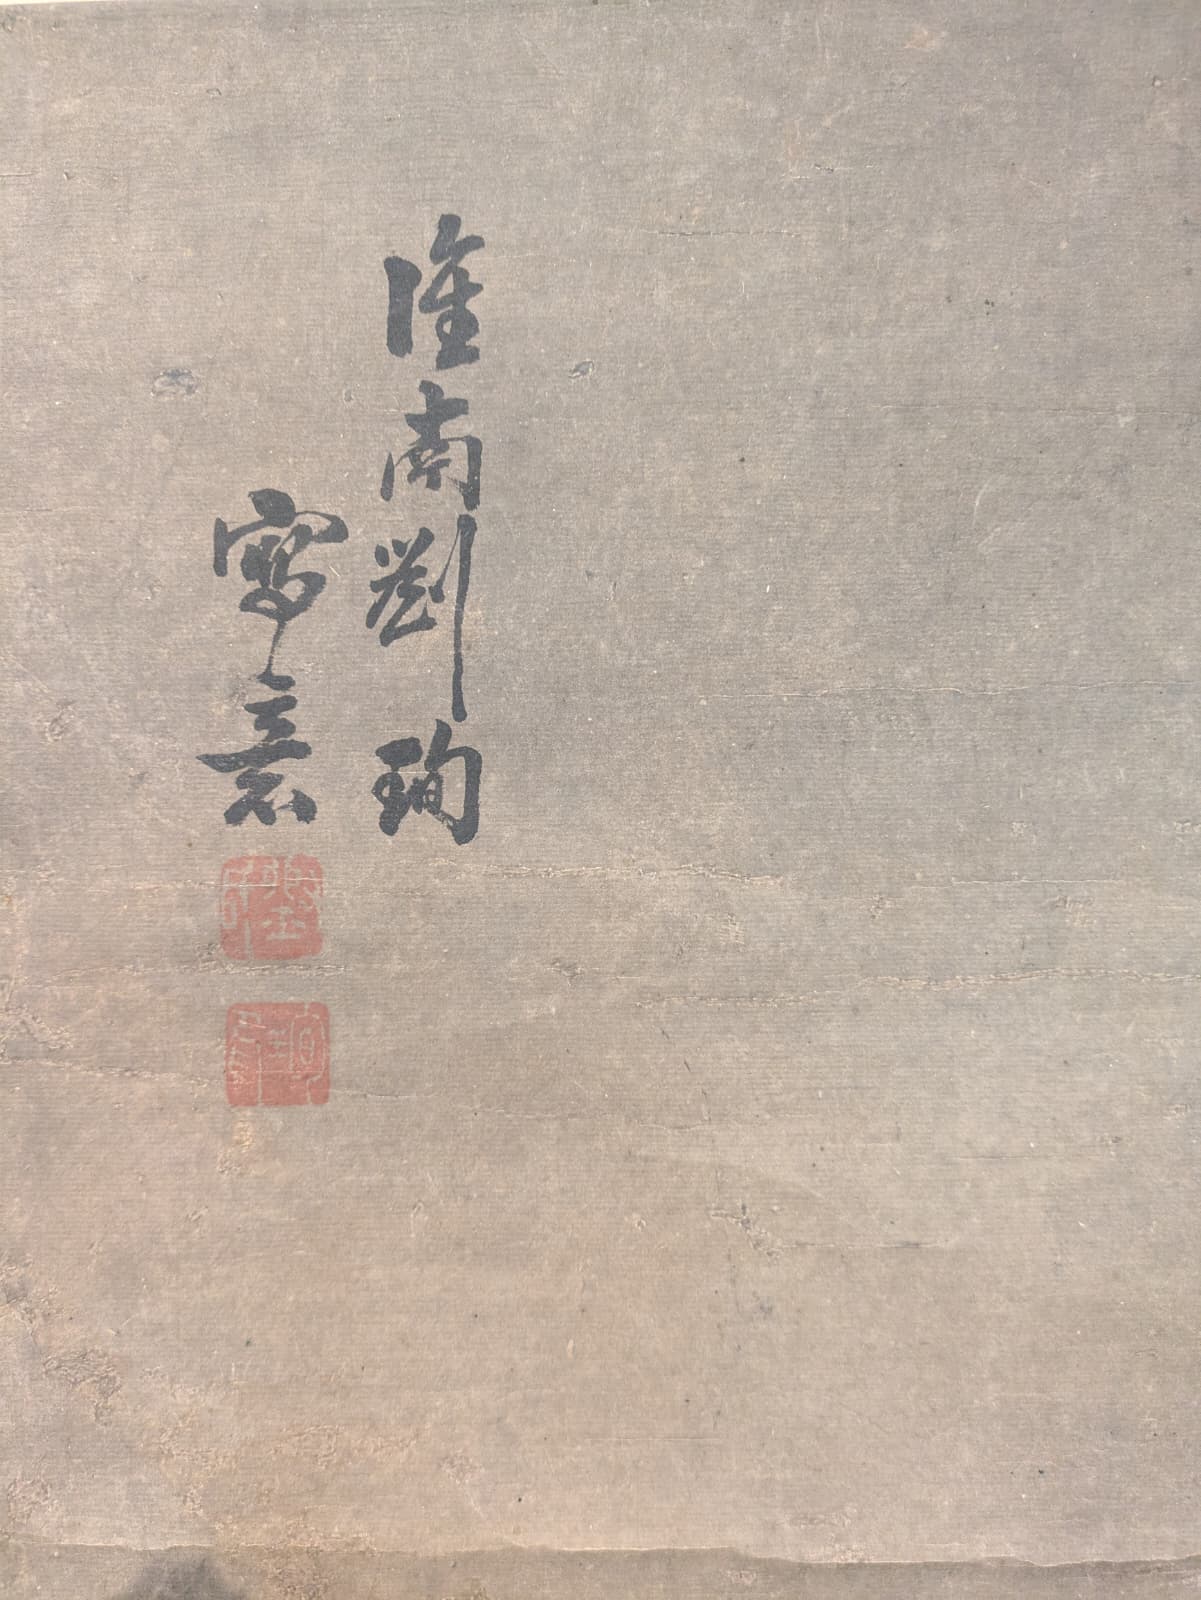 淮南劉珣
寫意